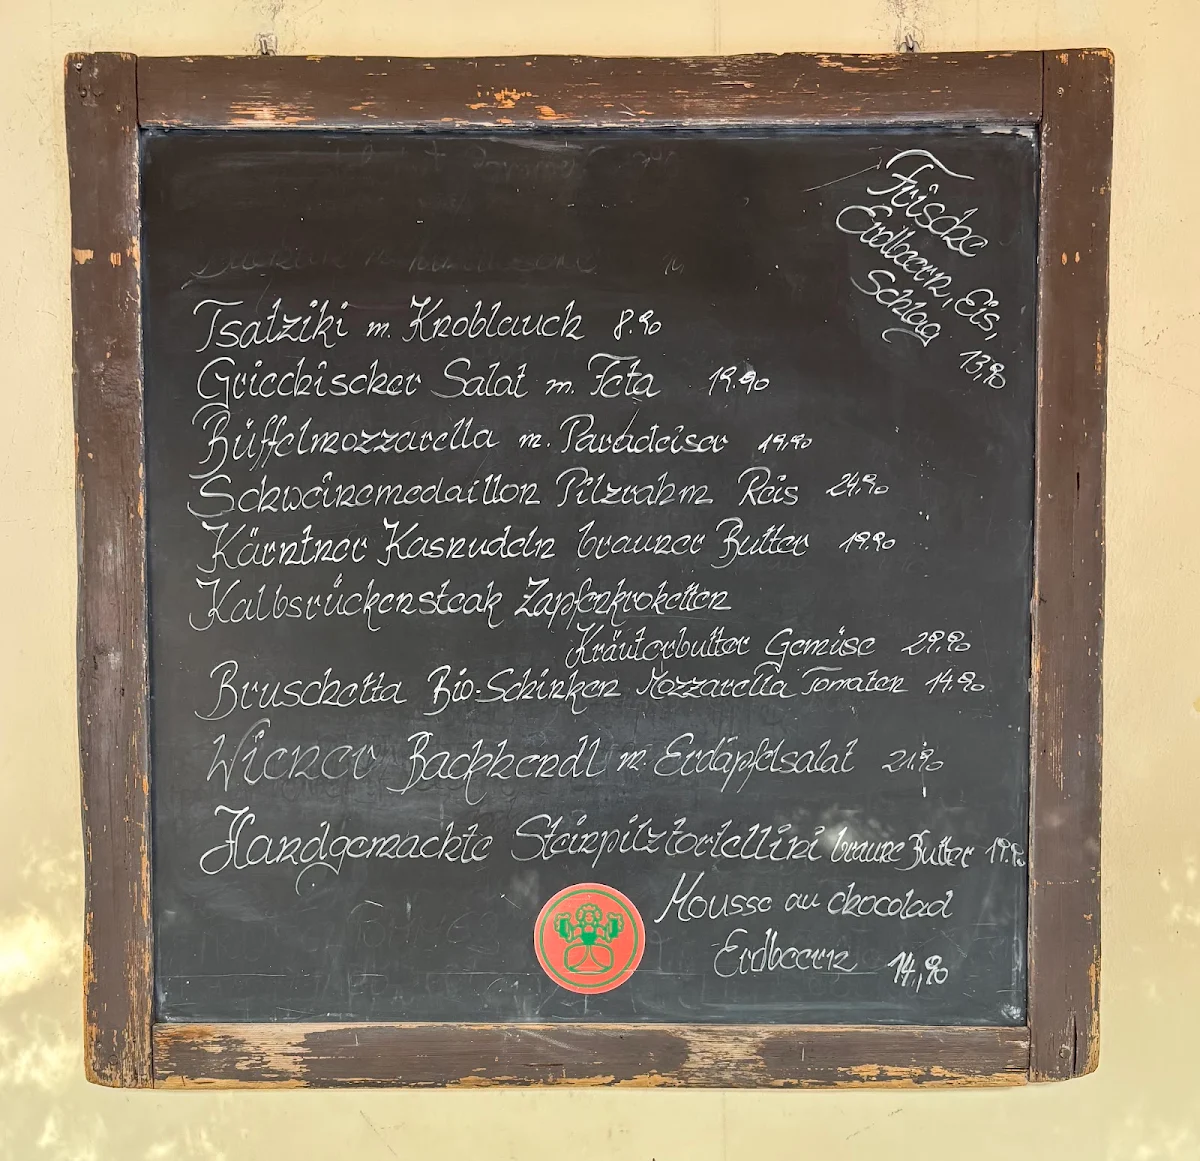 Frische
Erdbeern, Eis,
Schlag
13,90
Tsatziki m. Knoblauch 8.90
Griechischer Salat m. Feta 19.90
Büffelmozzarella m. Paradeiser 19,90
Schweinemedaillon Pilzrahm Reis 24,90
Kärntner Kasnudeln brauner Butter 19.90
Kalbsrückensteak Zapfenkroketten
Kräuterbutter Gemüse 29.90
Bruschetta Bio-Schinken Mozzarella Tomaten 14.90
Wiener Backhendl m. Erdäpfelsalat 21,90
Handgemachte Steinpilztortellini braune Butter 19.90
Mousse au chocolad
Erdbeern 14,90